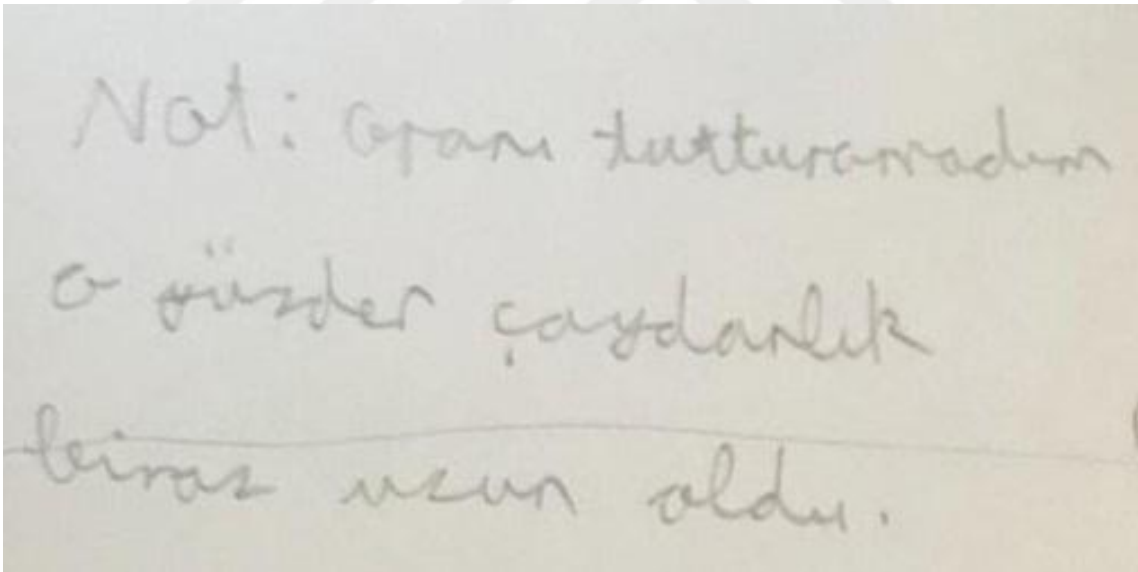 Not: oranı tutturamadım
o yüzden çaydanlık
biraz uzun oldu.